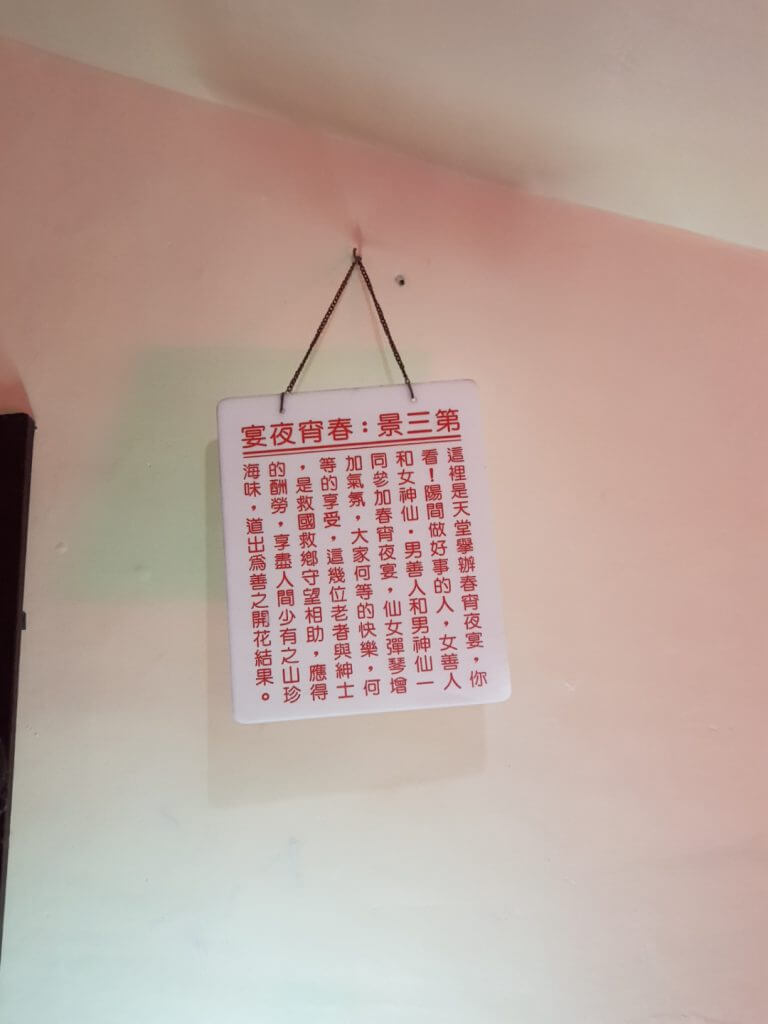 第三景：春宵夜宴
這裡是天堂舉辦春宵夜宴，你
看！陽間做好事的人，女善人
和女神仙．男善人和男神仙一
同參加春宵夜宴，仙女彈琴增
加氣氛，大家何等的快樂，何
等的享受，這幾位老者與紳士
，是救國救鄉守望相助，應得
的酬勞，享盡人間少有之山珍
海味，道出為善之開花結果。